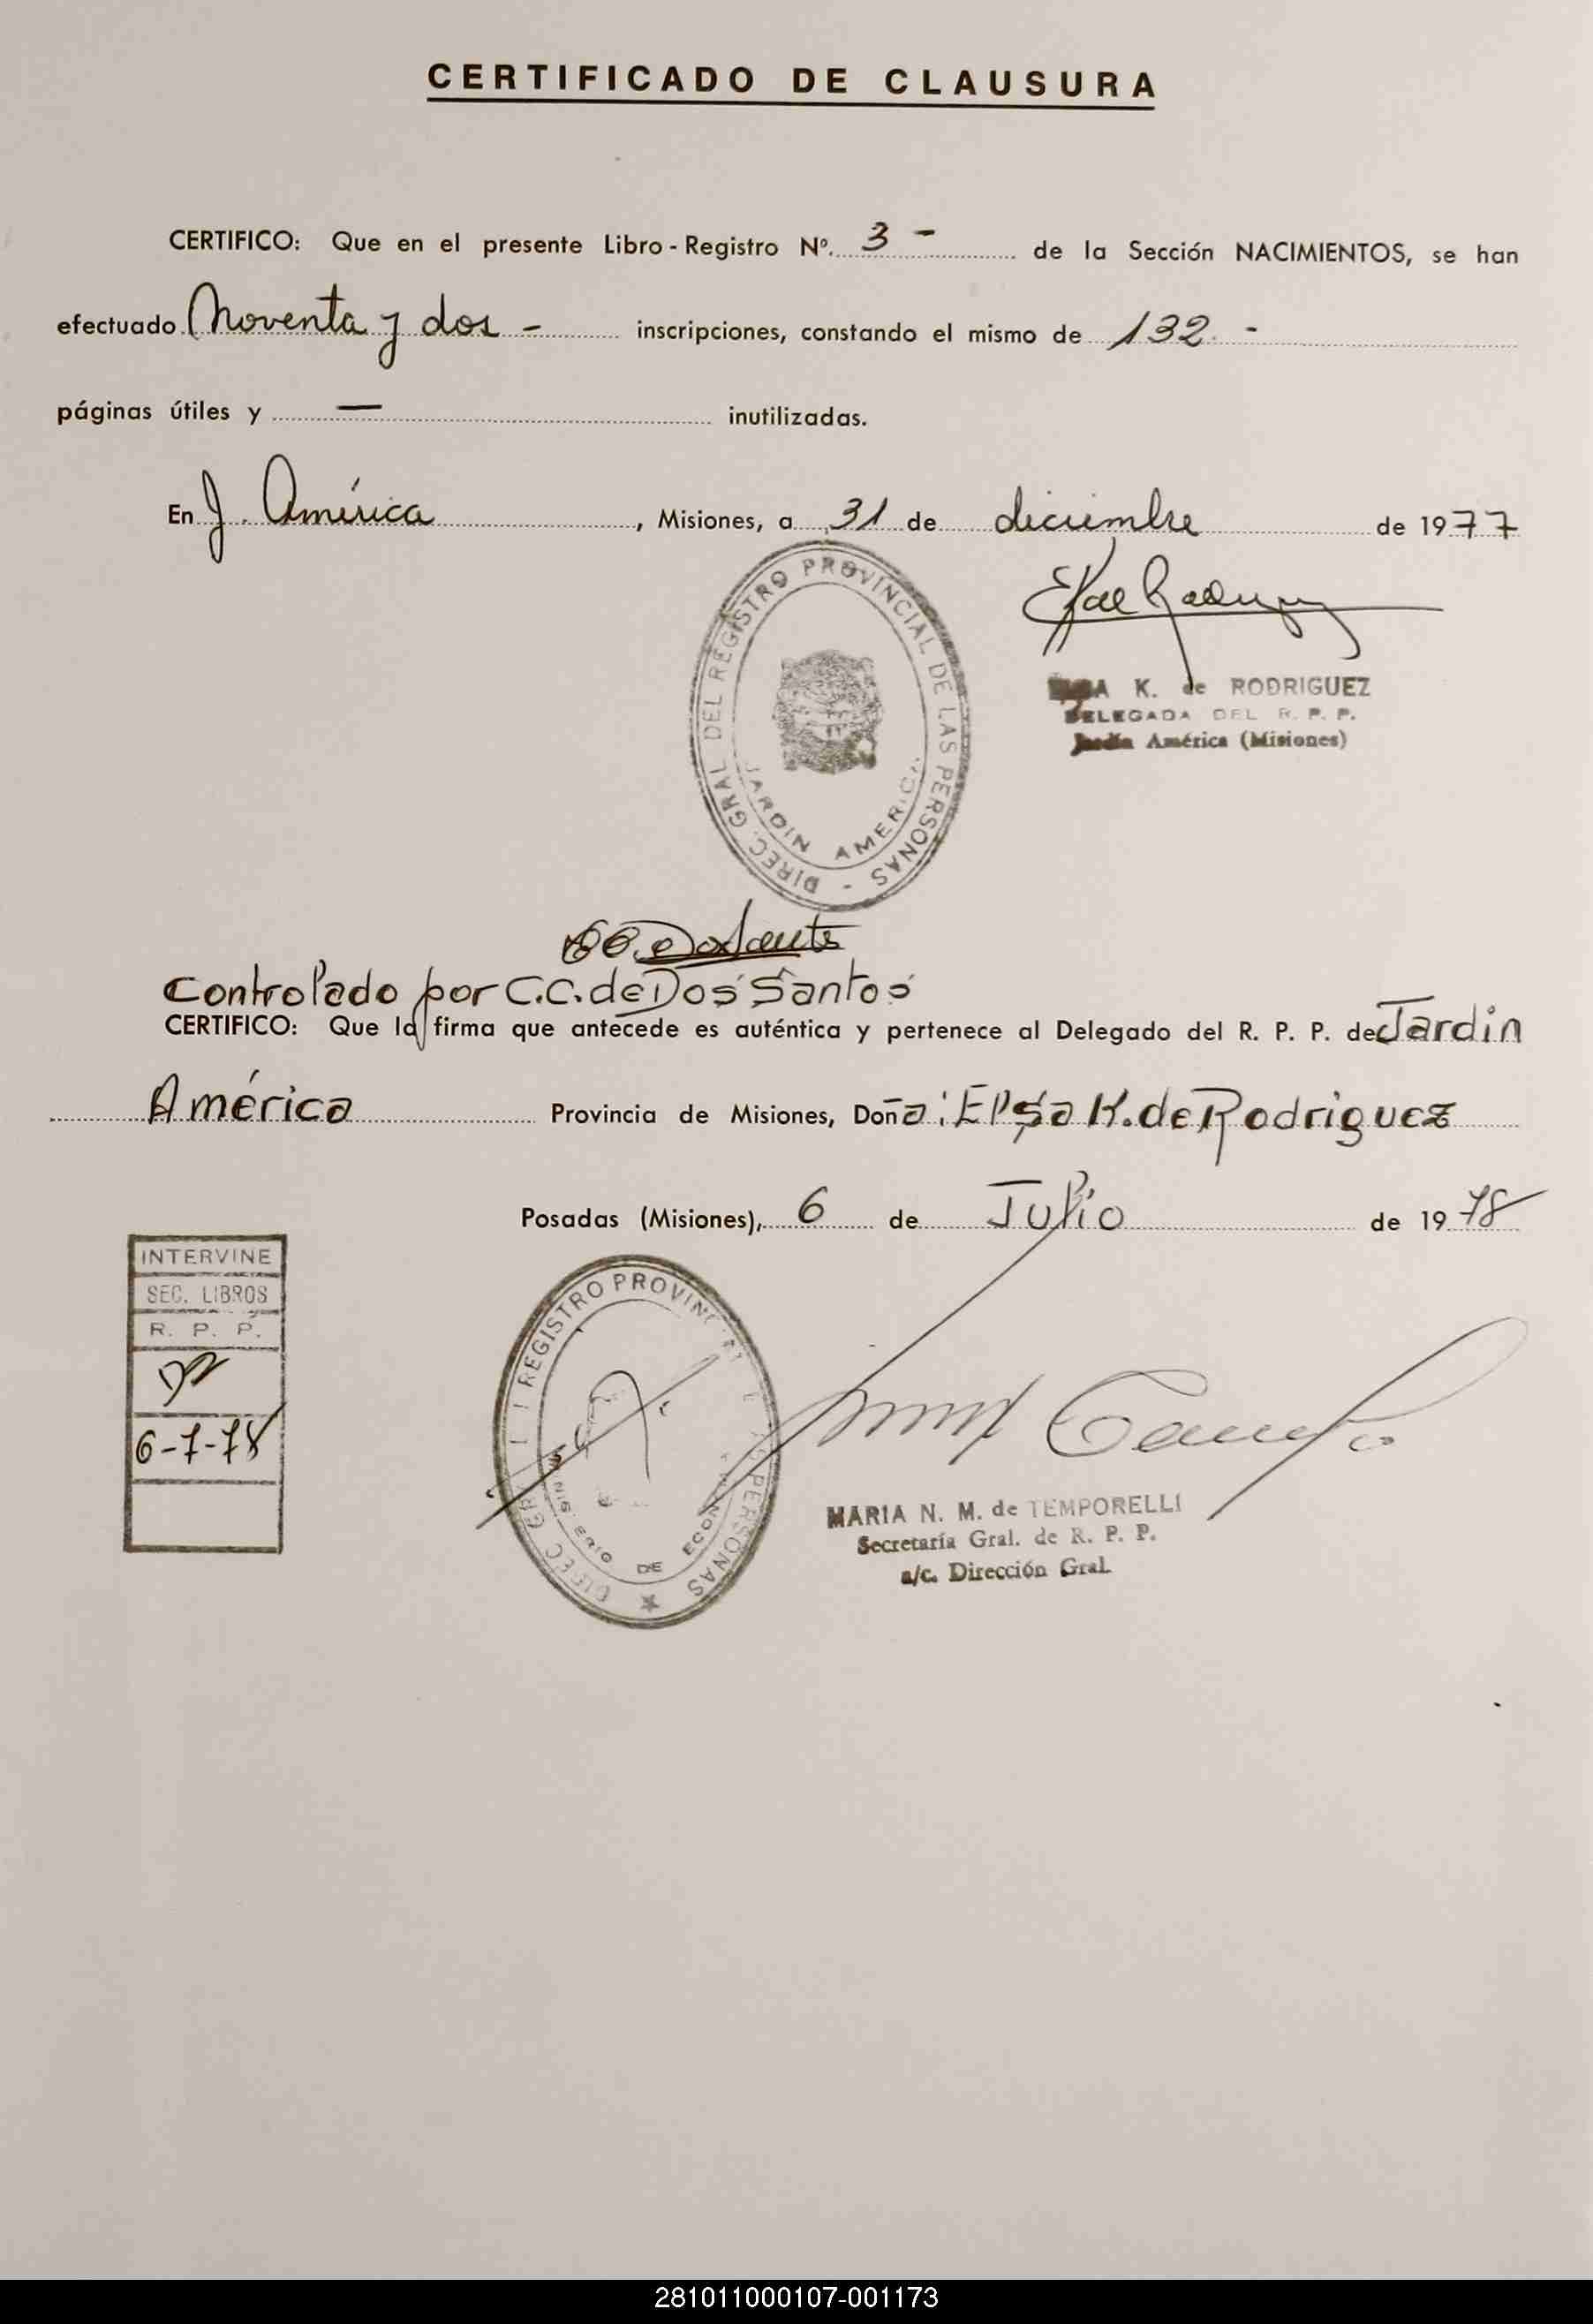 CERTIFICADO DE CLAUSURA
CERTIFICO: Que en el presente Libro - Registro Nº. 3 - de la Sección NACIMIENTOS, se han
efectuado Noventa y dos - inscripciones, constando el mismo de 132. -
páginas útiles y — inutilizadas.
En J. América, Misiones, a 31 de diciembre de 1977
DIREC. GRAL DEL REGISTRO PROVINCIAL DE LAS PERSONAS -
JARDIN AMERICA
K. de RODRIGUEZ
DELEGADA DEL R. P. P.
Jardín América (Misiones)
Controlado por C.C. de Dos Santos
CERTIFICO: Que la firma que antecede es auténtica y pertenece al Delegado del R. P. P. de Jardin
América Provincia de Misiones, Doña: Elsa K. de Rodriguez
Posadas (Misiones), 6 de Julio de 1978
INTERVINE
SEC. LIBROS
R. P. P.
6-7-78
REGISTRO PERSONAS
DE
MARIA N. M. de TEMPORELLI
Secretaría Gral. de R. P. P.
a/c. Dirección Gral.
281011000107-001173